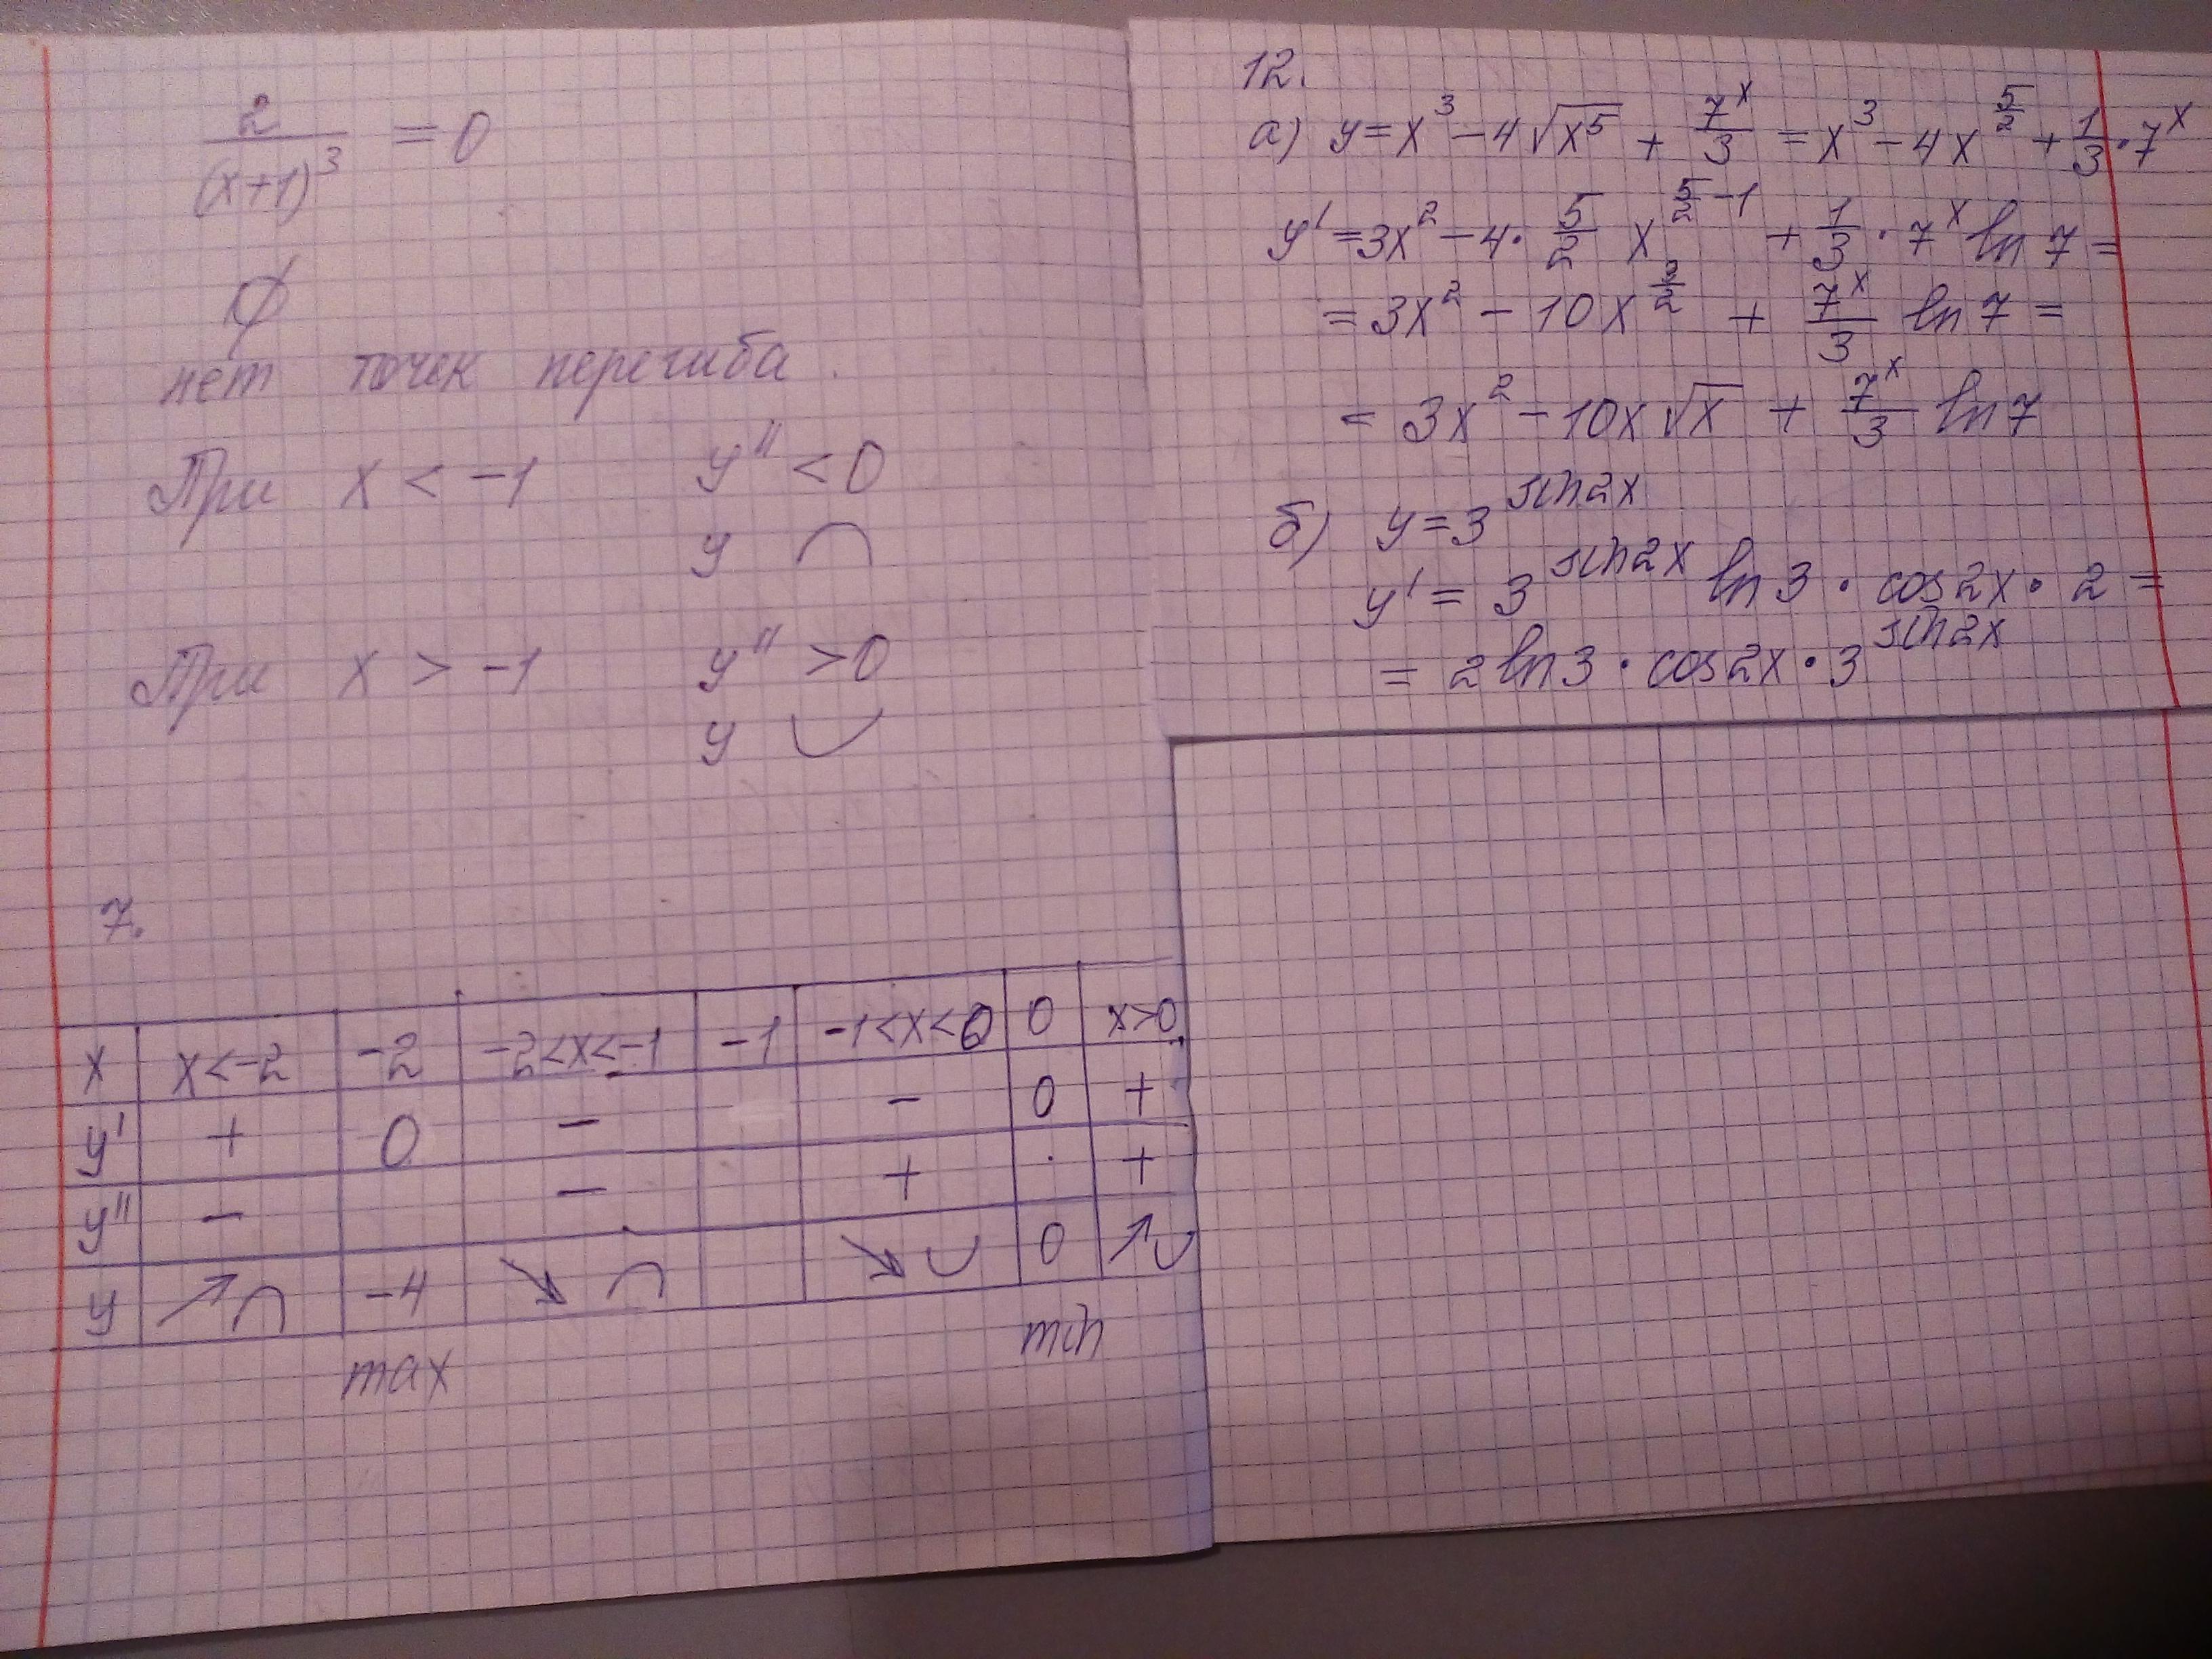 2/(x+1)³ = 0
∅
нет точек перегиба.
При x < -1 y'' < 0
y ⌒
При x > -1 y'' > 0
y ◡
7.
x | x<-2 | -2 | -2<x<-1 | -1 | -1<x<0 | 0 | x>0
y' | + | 0 | - | | - | 0 | +
y'' | - | | - | | + | · | +
y | ↗⌒ | -4 | ↘ ⌒ | | ↘ ◡ | 0 | ↗◡
max min
12.
а) y = x³ - 4√(x⁵) + 7^x/3 = x³ - 4x^(5/2) + 1/3 · 7^x
y' = 3x² - 4 · 5/2 x^(5/2 - 1) + 1/3 · 7^x ln 7 =
= 3x² - 10x^(3/2) + 7^x/3 ln 7 =
= 3x² - 10x√x + 7^x/3 ln 7
б) y = 3^(sin2x)
y' = 3^(sin2x) ln 3 · cos2x · 2 =
= 2 ln 3 · cos2x · 3^(sin2x)